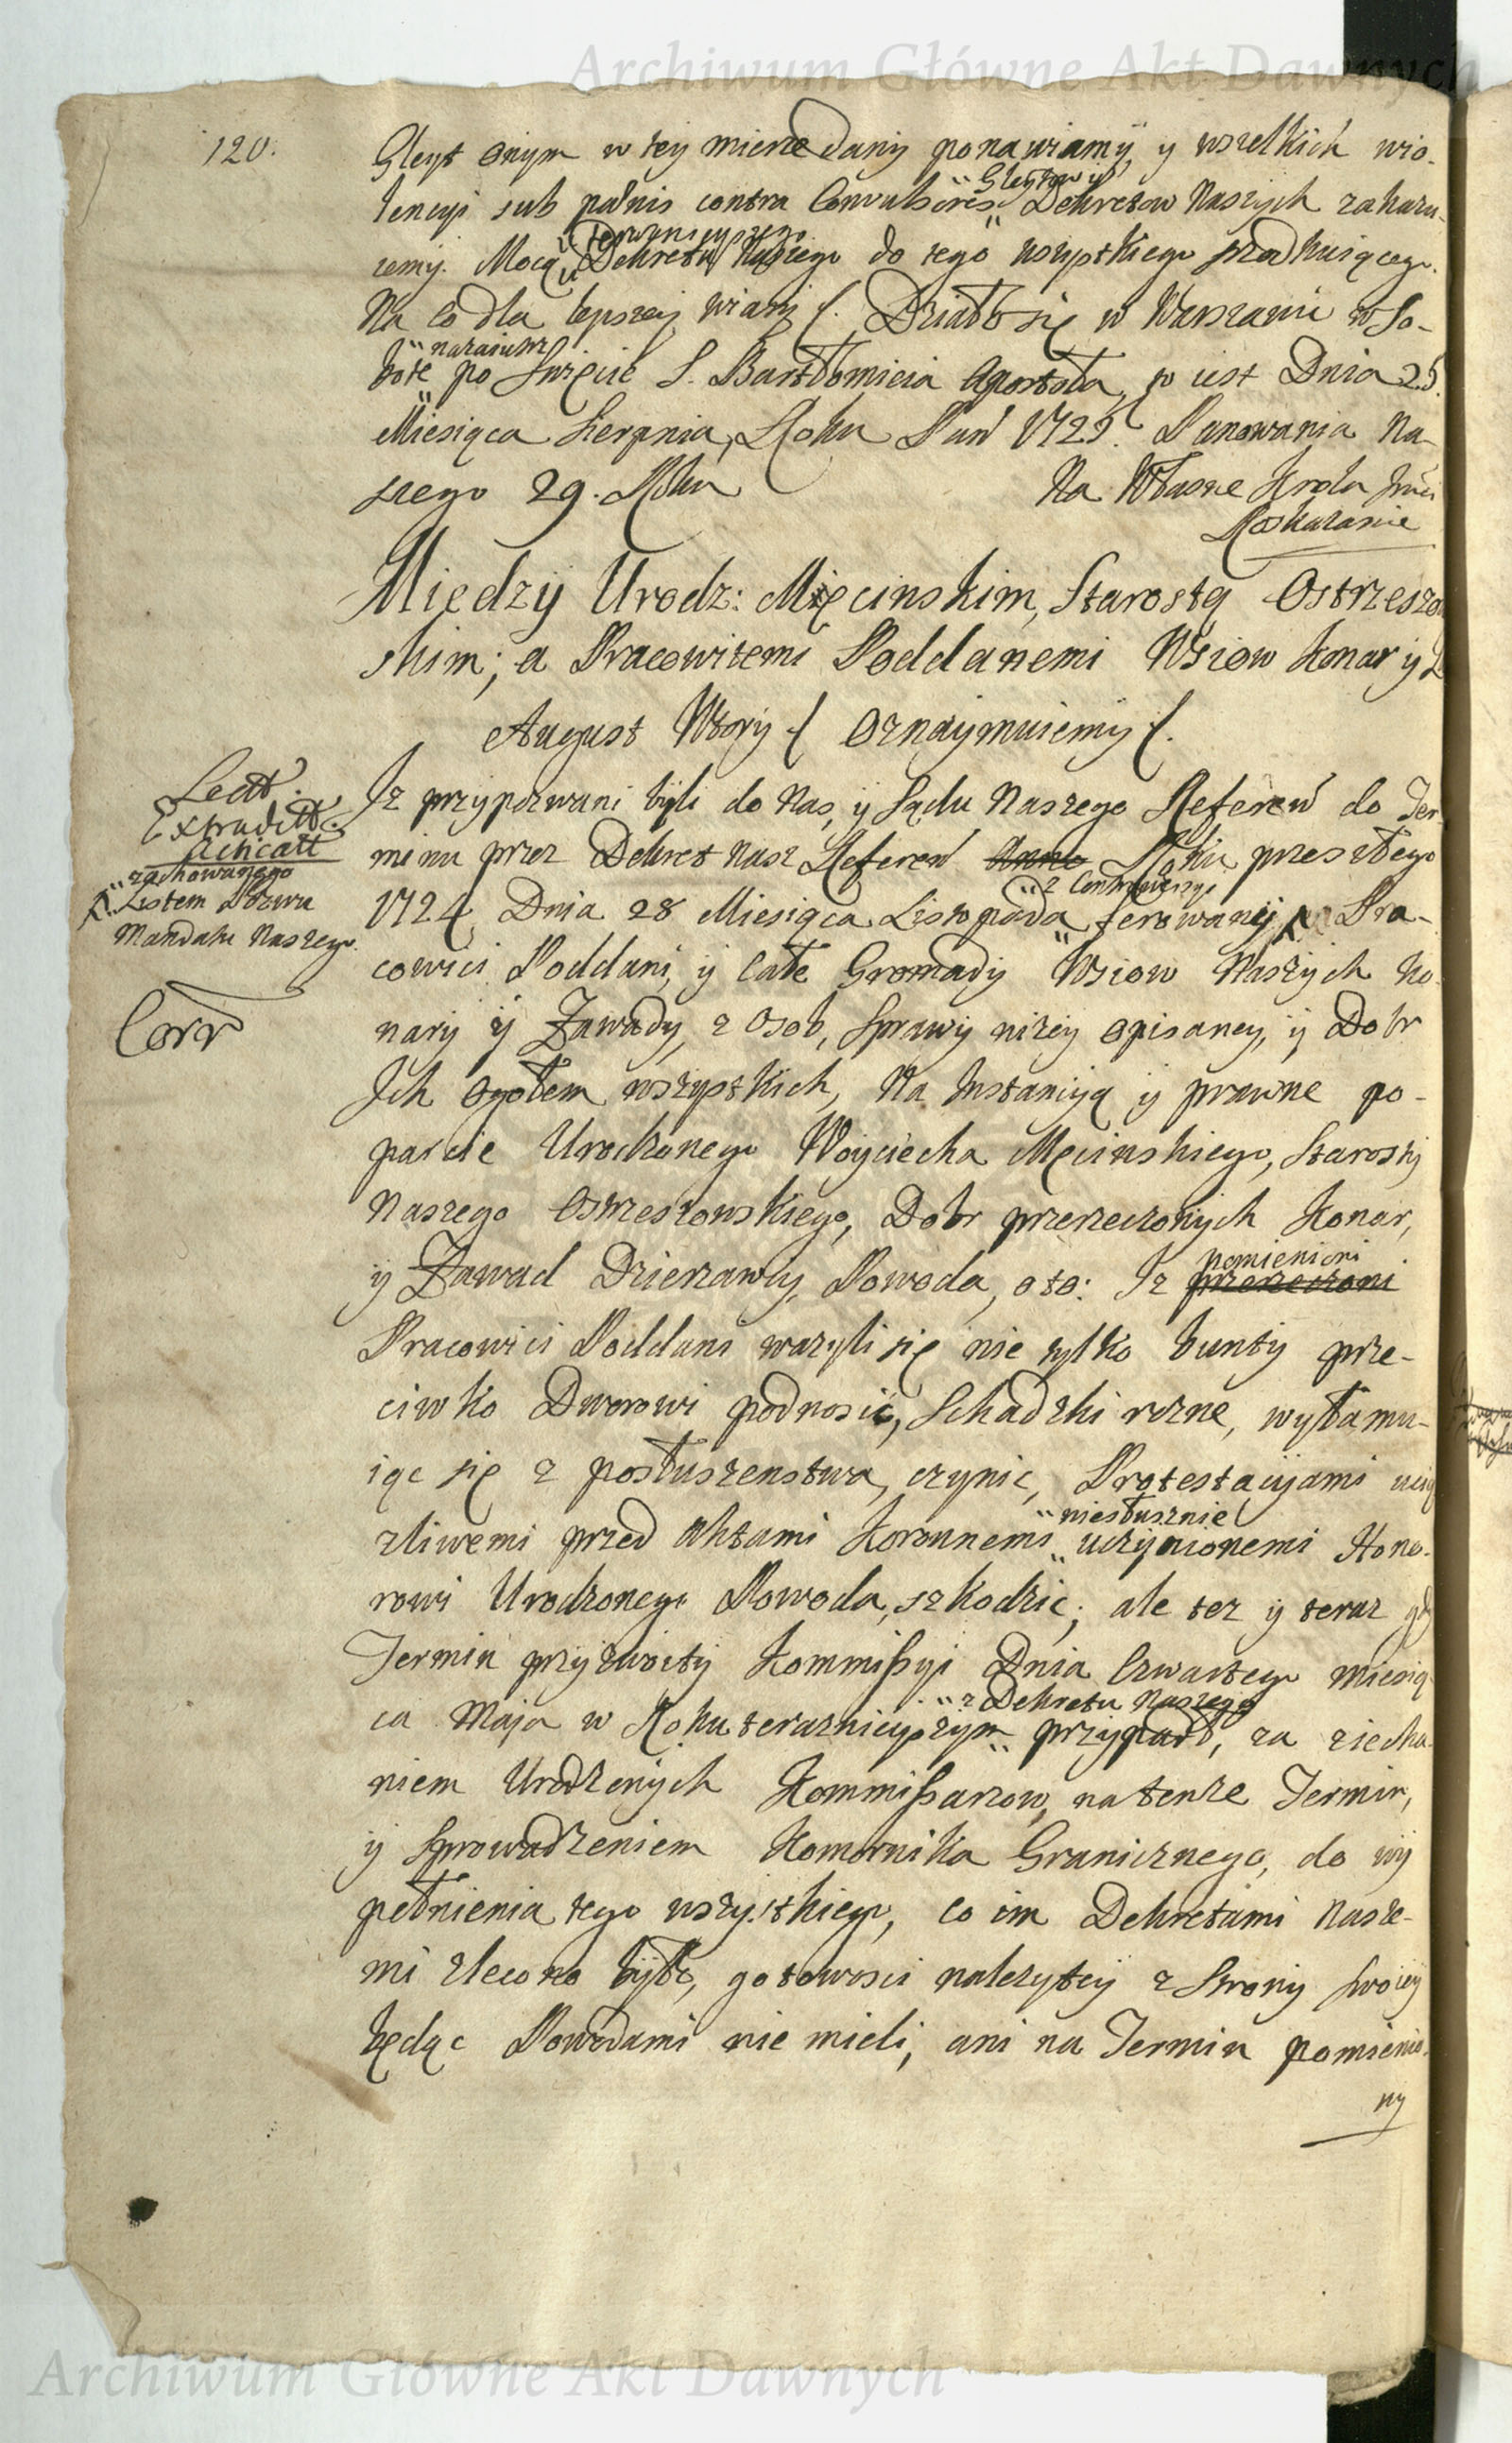 Archiwum Główne Akt Dawnych
120.
Gleyt onym w tey mierze dany ponawiamy, y wszelkich wio-
lencyi sub pœnis contra Convulsores Gleytow y Dekretow Naszych zakazu-
iemy. Mocą teraznieyszego Dekretu Naszego do tego wszystkiego
Na co dla lepszey wiary /. Działo się w Warszawie w So-
botę nazaiutrz po Swięcie S. Bartłomieia Apostoła, to iest Dnia 25.
Miesiąca Sierpnia, Roku Pań 1725. Panowania Na-
szego 29. Roku
Na Własne Krola Jmći
Roskazanie
Między Urodz: Męcinskim, Starostą Ostrzeszow
skim; a Pracowitemi Poddanemi Wsiow Konar y Z
August Wtory / Oznaymuiemy /.
Lect.
Extradítt.
zachowanego
Listem Pozwu
Mandatu Naszego.
Corr
Iz przypozwani byli do Nas, y Sądu Naszego Refereń do Ter-
minu przez Dekret Nasz Refereń Anno Roku przeszłego
1724 Dnia 28 Miesiąca Listopada z Controwersyi ferowany Pra-
cowici Poddani, y Całe Gromady Wsiow Naszych Ko-
nary y Zawady, z Osob, Sprawy niżey opisaney, y Dobr
Ich ogołem wszystkich, Na Instancyą y prawne po-
parcie Urodzonego Woyciecha Męcinskiego, Starosty
Naszego Ostrzeszowskiego, Dobr przerzeczonych Konar,
y Zawad Dzierzawcy, Powoda, oto: Iz przerzeczeni pomienieni
Pracowici Poddani wazyli się nie tylko bunty prze-
ciwko Dworowi podnosić, Schadzki rozne, wyłamu-
iąc się z posłuszenstwa, czynic, Protestacyjami ucią
zliwemi przed Aktami Koronnemi niesłusznie uczynionemi Hono-
rowi Urodzonego Powoda, szkodzic; ale tez y teraz gdy
Termin przyzwoity Kommissyi Dnia Czwartego miesią
ca Maja w Roku teraznieyszym z Dekretu Naszego przypadł, za ziecha-
niem Urodzonych Kommissarzow, na tenze Termin,
y Sprowadzeniem Komornika Granicznego, do wy
pełnienia tego wszystkiego, co im Dekretami Nasze-
mi zlecono było, gotowosci nalezytey z Strony swoiey
będąc Powodami nie mieli, ani na Termin pomienio-
ny
Archiwum Główne Akt Dawnych